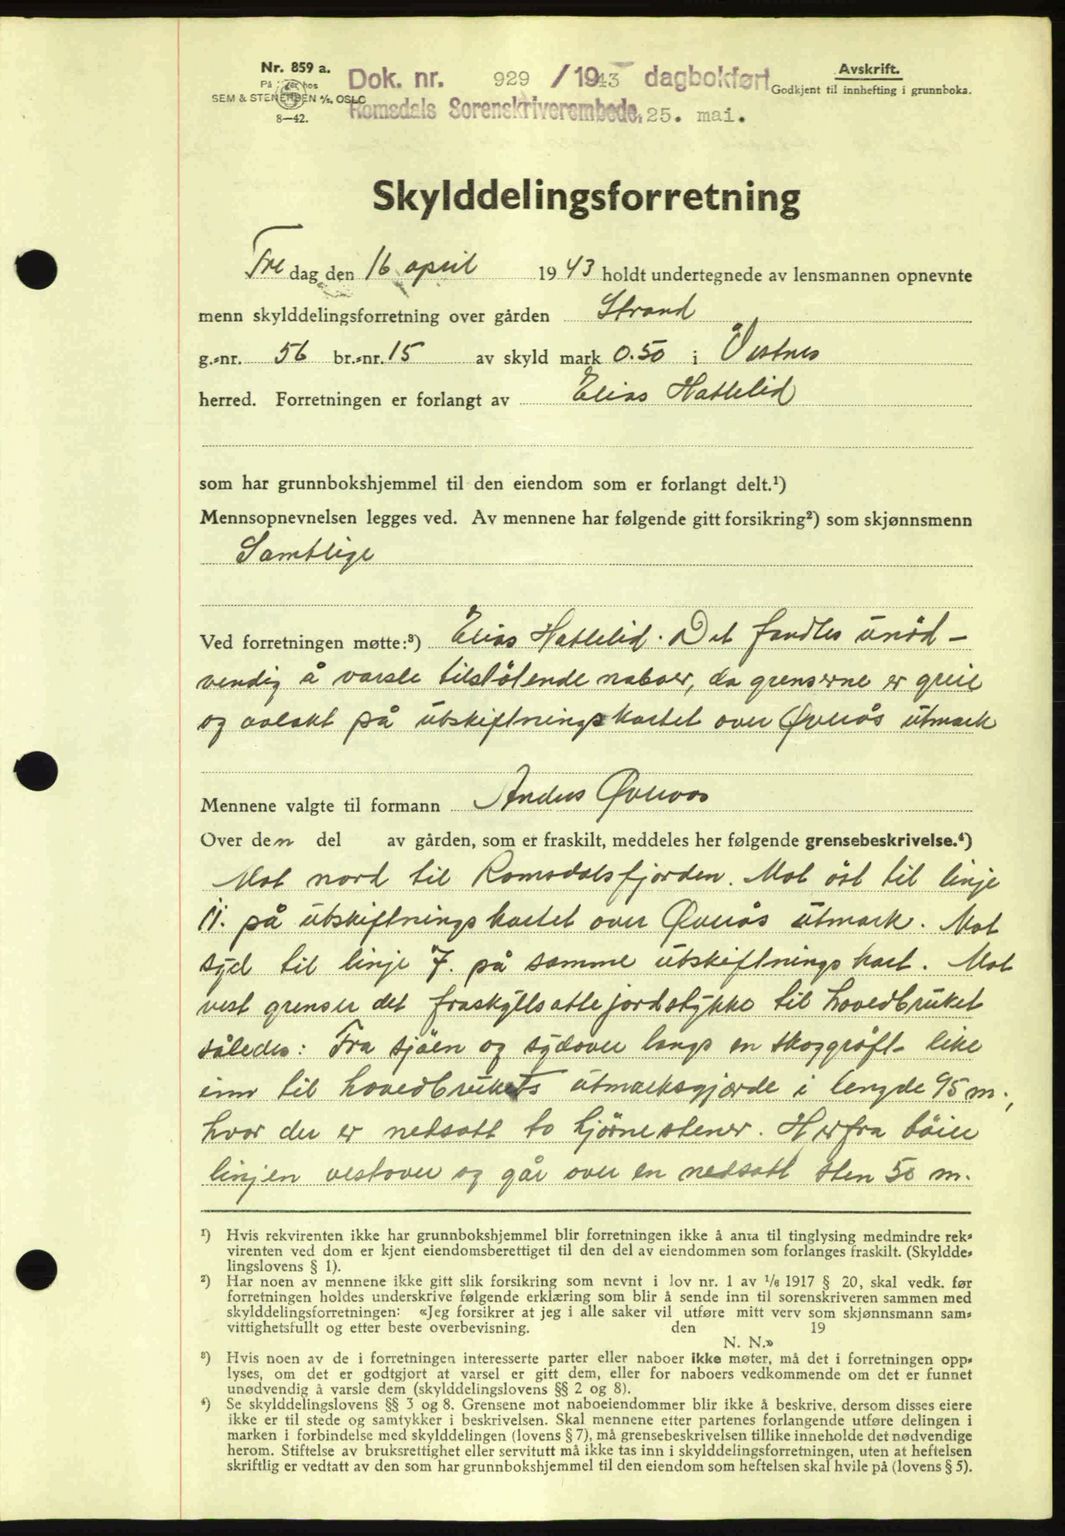 Nr. 859 a.
På hos
SEM & STENERSEN A/S, OSLO
8—42.
Dok. nr. 929 /1943 dagbokført
Romsdals Sorenskriverembede, 25. mai.
Avskrift.
Godkjent til innhefting i grunnboka.
Skylddelingsforretning
Fre dag den 16 april 1943 holdt undertegnede av lensmannen opnevnte
menn skylddelingsforretning over gården Strand
g.-nr. 56 br.-nr. 15 av skyld mark 0.50 i Vestnes
herred. Forretningen er forlangt av Elias Hattelid
som har grunnbokshjemmel til den eiendom som er forlangt delt.¹)
Mennsopnevnelsen legges ved. Av mennene har følgende gitt forsikring²) som skjønnsmenn
Samtlige
Ved forretningen møtte:³) Elias Hattelid. Det fandtes unöd-
vendig å varsle tilstötende naboer, da grenserne er greie
og avlakt på utskiftningskartet over Øverås utmark
Mennene valgte til formann Anders Øveraas
Over den del av gården, som er fraskilt, meddeles her følgende grensebeskrivelse.⁴)
Mot nord til Romsdalsfjorden. Mot öst til linje
11. på utskiftningskartet over Øverås utmark. Mot
syd til linje 7. på samme utskiftningskart. Mot
vest grenser det fraskyllsatte jordstykke til hovedbruket
således: Fra sjöen og sydover langs en skoggröft like
inn til hovedbrukets utmarksgjærde i lengde 95 m.,
hvor der er netsatt to hjörnestener. Herfra böier
linjen vestover og går over en netsatt sten 50 m.
¹) Hvis rekvirenten ikke har grunnbokshjemmel blir forretningen ikke å anta til tinglysing medmindre rek-
virenten ved dom er kjent eiendomsberettiget til den del av eiendommen som forlanges fraskilt. (Skyldde-
lingslovens § 1).
²) Har noen av mennene ikke gitt slik forsikring som nevnt i lov nr. 1 av 1/6 1917 § 20, skal vedk. før
forretningen holdes underskrive følgende erklæring som blir å sende inn til sorenskriveren sammen med
skylddelingsforretningen: «Jeg forsikrer at jeg i alle saker vil utføre mitt verv som skjønnsmann sam-
vittighetsfullt og etter beste overbevisning. den 19
N. N.»
³) Hvis noen av de i forretningen interesserte parter eller naboer ikke møter, må det i forretningen opp-
lyses, om det er godtgjort at varsel er gitt dem, eller for naboers vedkommende om det er funnet
unødvendig å varsle dem (skylddelingslovens §§ 2 og 8).
⁴) Se skylddelingslovens §§ 3 og 8. Grensene mot naboeiendommer blir ikke å beskrive, dersom disses eiere
ikke er til stede og samtykker i beskrivelsen. Skal mennene etter partenes forlangende utføre delingen i
marken i forbindelse med skylddelingen (lovens § 7), må grensebeskrivelsen tillike inneholde det nødvendige
herom. Stiftelse av bruksrettighet eller servitutt må ikke tas inn i skylddelingsforretningen, uten at heftelsen
skriftlig er vedtatt av den som har grunnbokshjemmel til den eiendom som heftelsen skal hvile på (lovens § 5).